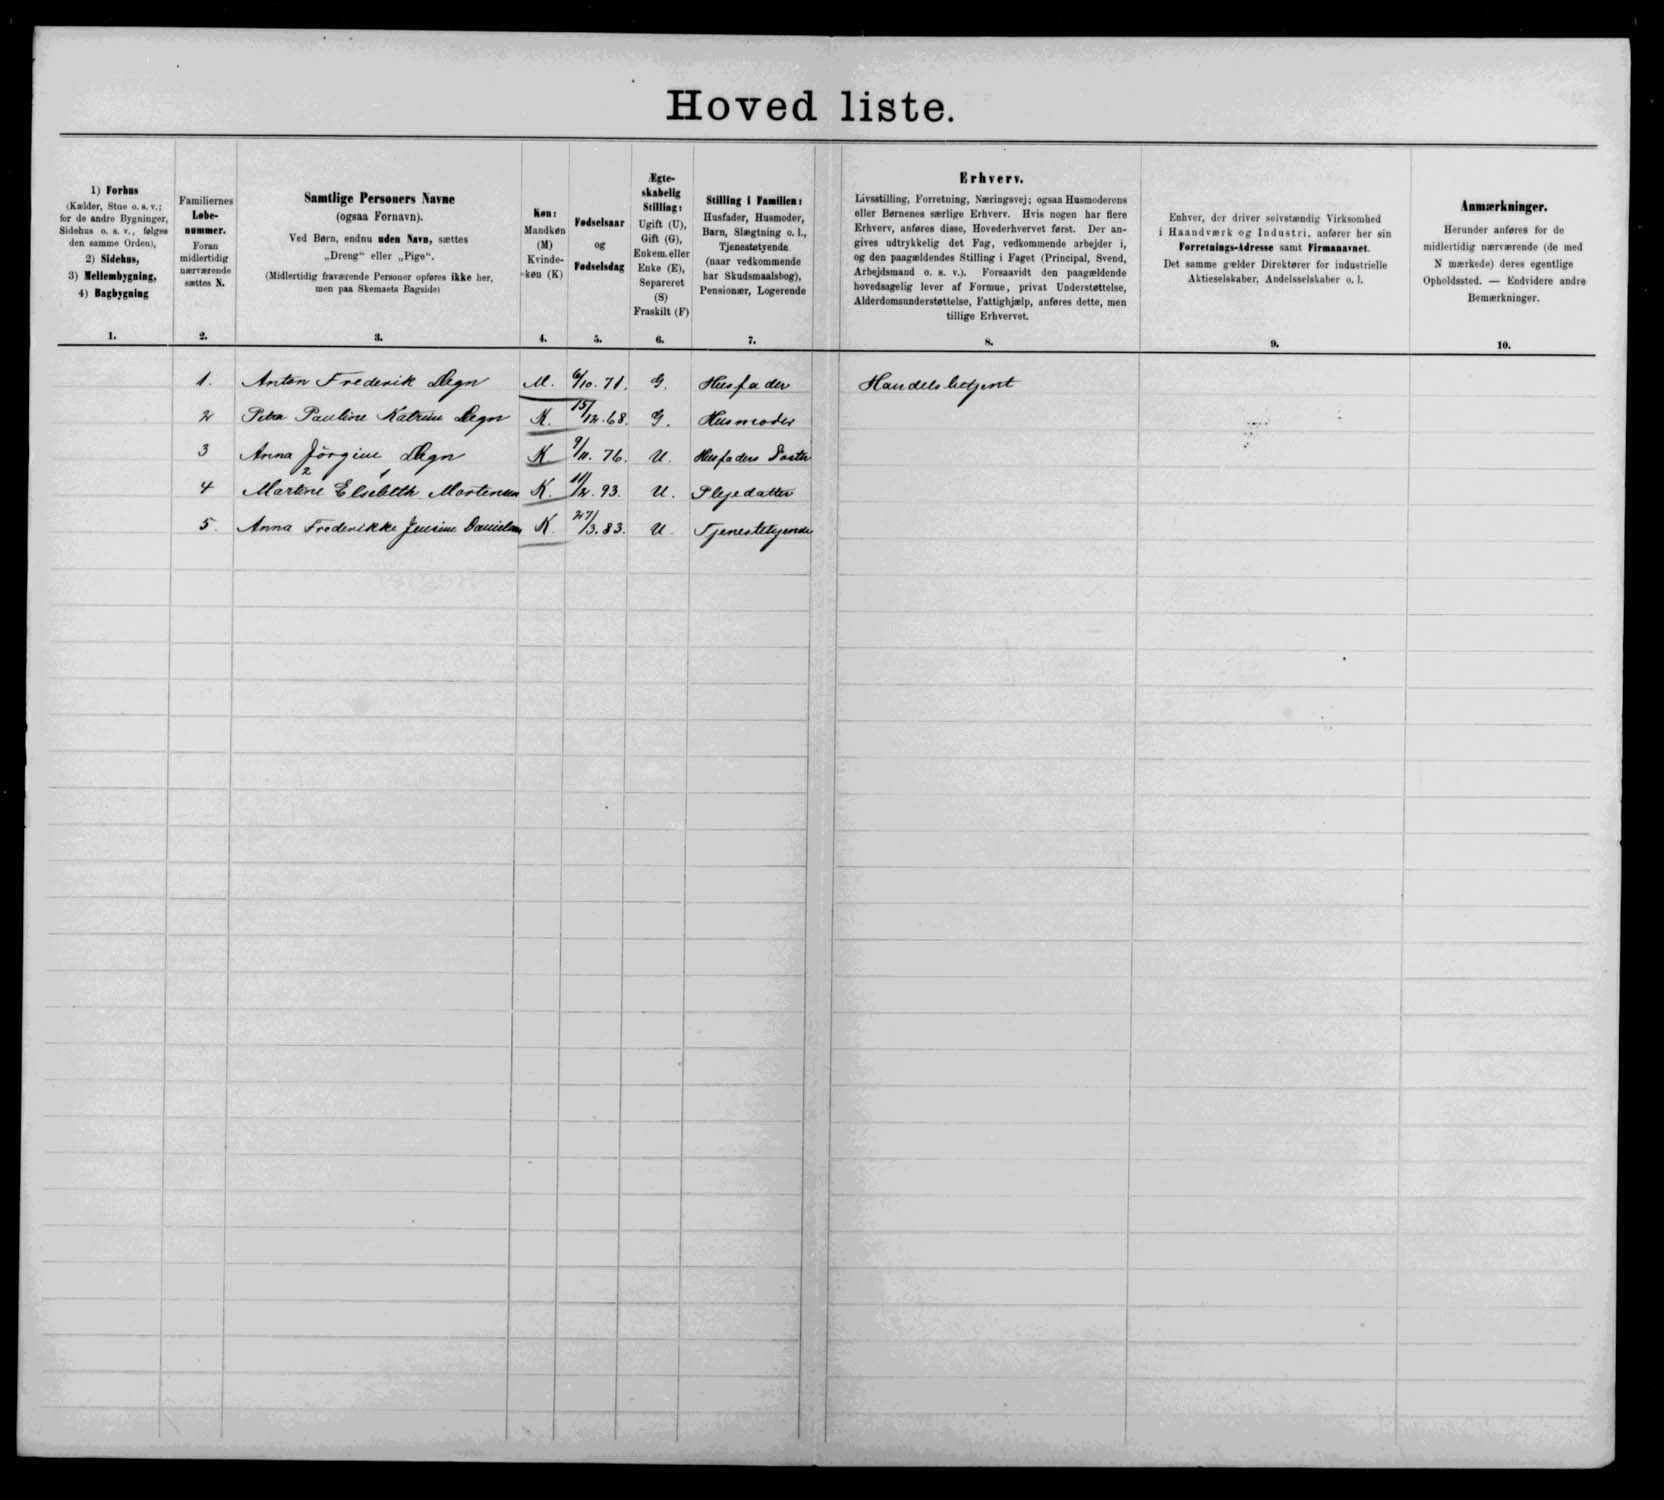 Hoved liste.
1) Forhus
(Kælder, Stue o. s. v.;
for de andre Bygninger,
Sidehus o. s. v., følges
den samme Orden),
2) Sidehus,
3) Mellembygning,
4) Bagbygning
1.
Familiernes
Løbe-
nummer.
Foran
midlertidig
nærværende
sættes N.
2.
Samtlige Personers Navne
(ogsaa Fornavn).
Ved Børn, endnu uden Navn, sættes
„Dreng“ eller „Pige“.
(Midlertidig fraværende Personer opføres ikke her,
men paa Skemaets Bagside)
3.
Køn:
Mandkøn
(M)
Kvinde-
køn (K)
4.
Fødselsaar
og
Fødselsdag
5.
Ægte-
skabelig
Stilling:
Ugift (U),
Gift (G),
Enkem. eller
Enke (E),
Separeret
(S)
Fraskilt (F)
6.
Stilling i Familien:
Husfader, Husmoder,
Barn, Slægtning o. l.,
Tjenestetyende
(naar vedkommende
har Skudsmaalsbog),
Pensionær, Logerende
7.
Erhverv.
Livsstilling, Forretning, Næringsvej; ogsaa Husmoderens
eller Børnenes særlige Erhverv. Hvis nogen har flere
Erhverv, anføres disse, Hovederhvervet først. Der an-
gives udtrykkelig det Fag, vedkommende arbejder i,
og den paagældendes Stilling i Faget (Principal, Svend,
Arbejdsmand o. s. v.). Forsaavidt den paagældende
hovedsagelig lever af Formue, privat Understøttelse,
Alderdomsunderstøttelse, Fattighjælp, anføres dette, men
tillige Erhvervet.
8.
Enhver, der driver selvstændig Virksomhed
i Haandværk og Industri, anfører her sin
Forretnings-Adresse samt Firmanavnet.
Det samme gælder Direktører for industrielle
Aktieselskaber, Andelsselskaber o. l.
9.
Anmærkninger.
Herunder anføres for de
midlertidig nærværende (de med
N mærkede) deres egentlige
Opholdssted. — Endvidere andre
Bemærkninger.
10.
1. Anton Frederik Degn M. 6/10. 71. G. Husfader Handelsbetjent
2 Petra Pauline Katrine Degn K. 15/12. 68. G. Husmoder
3 Anna Jörgine Degn K 9/11. 76. U. Husfaders Søster
2 1
4 Martine Elsebeth Mortensen K. 11/2. 93. U. Plejedatter
5. Anna Frederikke Jensine Danielsen K. 27/3. 83. U. Tjenestetyende